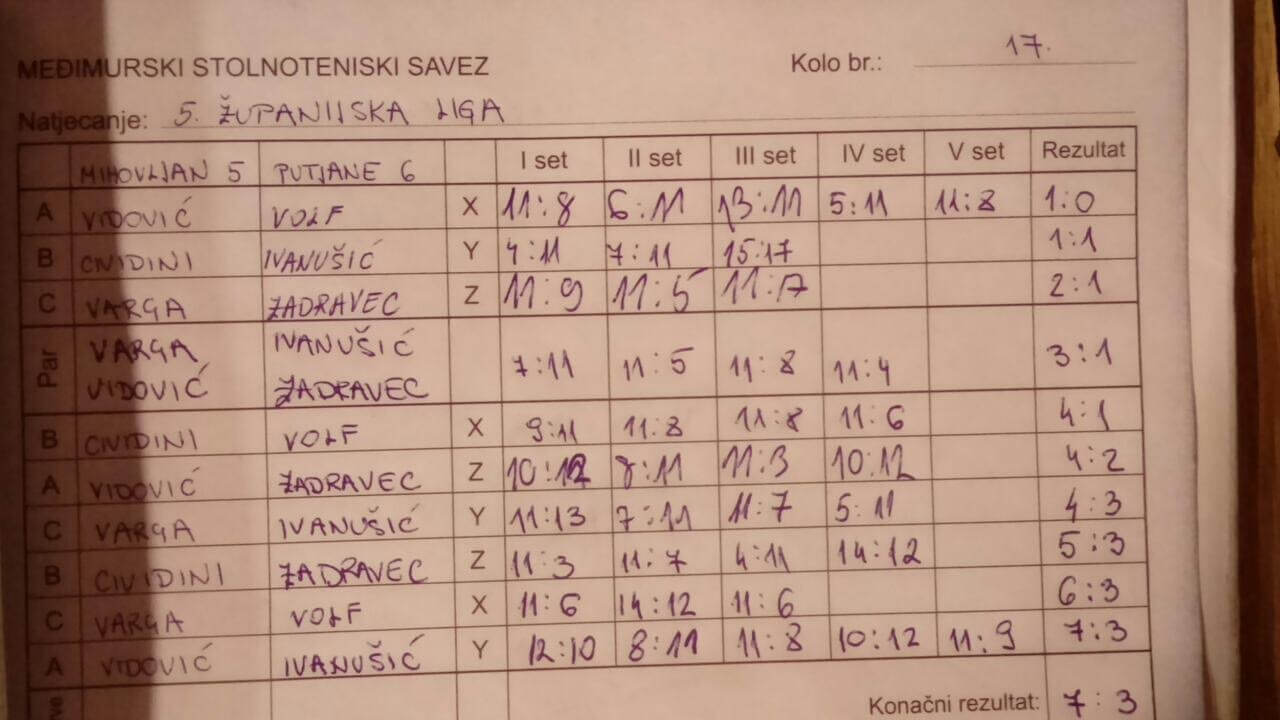 MEĐIMURSKI STOLNOTENISKI SAVEZ Kolo br.: 17.
Natjecanje: 5. ŽUPANIJSKA LIGA
MIHOVLJAN 5 PUTJANE 6 I set II set III set IV set V set Rezultat
A VIDOVIĆ VOLF X 11:8 6:11 13:11 5:11 11:8 1:0
B CIVIDINI IVANUŠIĆ Y 4:11 7:11 15:17 1:1
C VARGA ZADRAVEC Z 11:9 11:5 11:7 2:1
Par VARGA IVANUŠIĆ 7:11 11:5 11:8 11:4 3:1
VIDOVIĆ ZADRAVEC
B CIVIDINI VOLF X 9:11 11:8 11:8 11:6 4:1
A VIDOVIĆ ZADRAVEC Z 10:12 8:11 11:3 10:12 4:2
C VARGA IVANUŠIĆ Y 11:13 7:11 11:7 5:11 4:3
B CIVIDINI ZADRAVEC Z 11:3 11:7 4:11 14:12 5:3
C VARGA VOLF X 11:6 14:12 11:6 6:3
A VIDOVIĆ IVANUŠIĆ Y 12:10 8:11 11:8 10:12 11:9 7:3
Konačni rezultat: 7:3